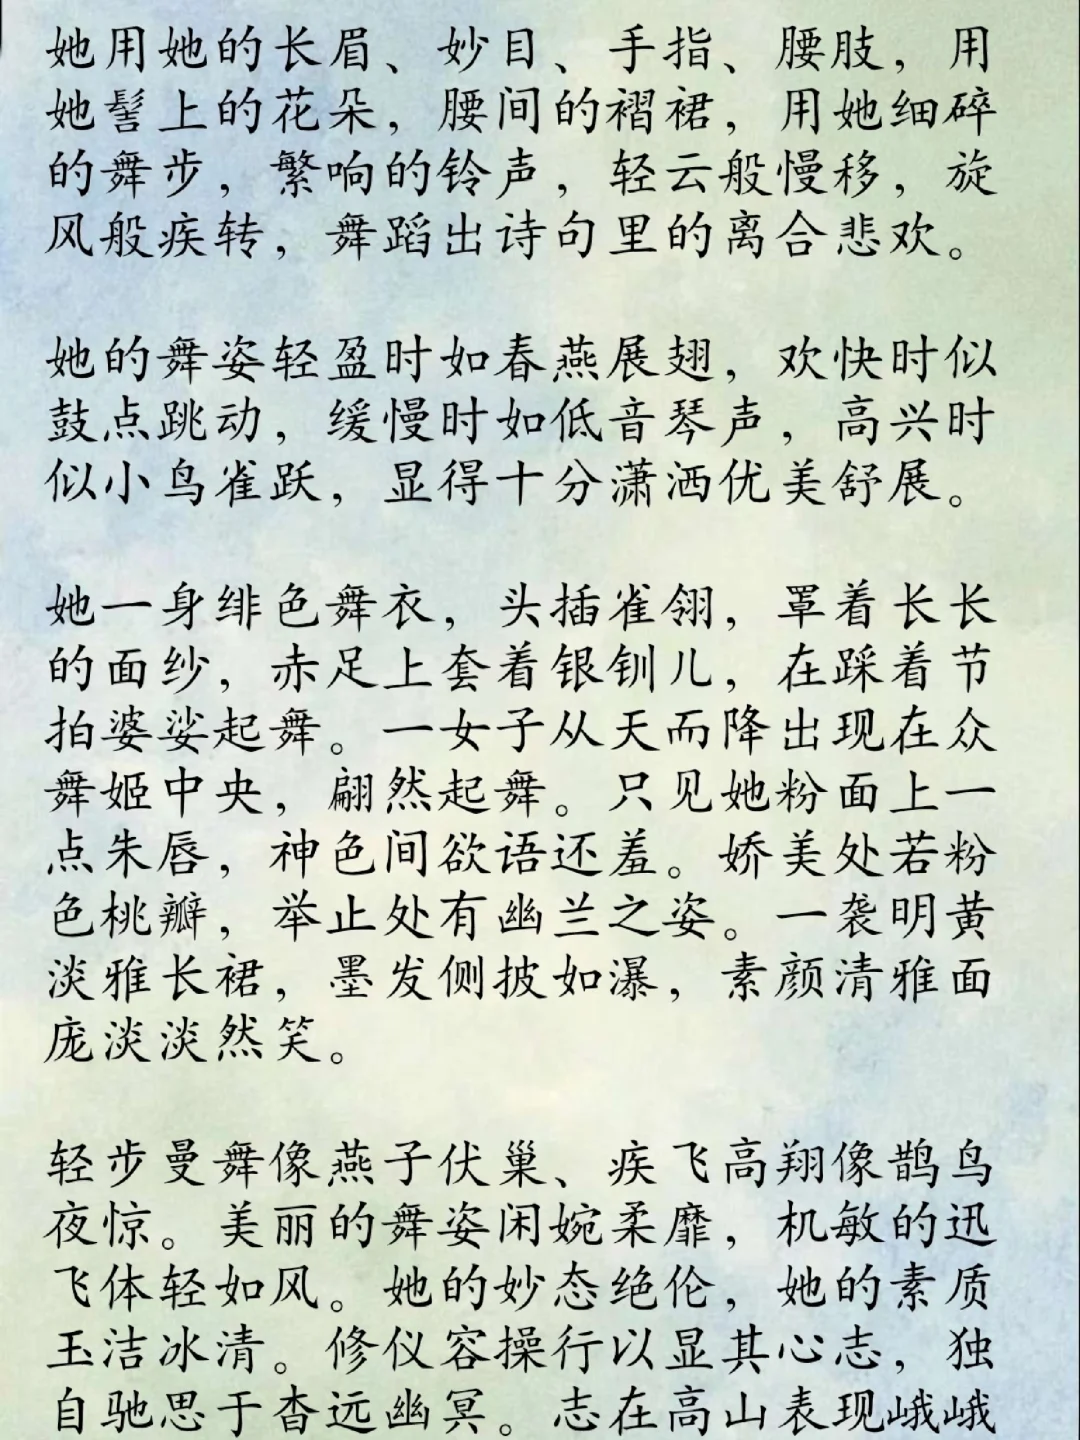 她用她的长眉、妙目、手指、腰肢，用
她髻上的花朵，腰间的褶裙，用她细碎
的舞步，繁响的铃声，轻云般慢移，旋
风般疾转，舞蹈出诗句里的离合悲欢。
她的舞姿轻盈时如春燕展翅，欢快时似
鼓点跳动，缓慢时如低音琴声，高兴时
似小鸟雀跃，显得十分潇洒优美舒展。
她一身绯色舞衣，头插雀翎，罩着长长
的面纱，赤足上套着银钏儿，在踩着节
拍婆娑起舞。一女子从天而降出现在众
舞姬中央，翩然起舞。只见她粉面上一
点朱唇，神色间欲语还羞。娇美处若粉
色桃瓣，举止处有幽兰之姿。一袭明黄
淡雅长裙，墨发侧披如瀑，素颜清雅面
庞淡淡然笑。
轻步曼舞像燕子伏巢、疾飞高翔像鹊鸟
夜惊。美丽的舞姿闲婉柔靡，机敏的迅
飞体轻如风。她的妙态绝伦，她的素质
玉洁冰清。修仪容操行以显其心志，独
自驰思于杳远幽冥。志在高山表现峨峨